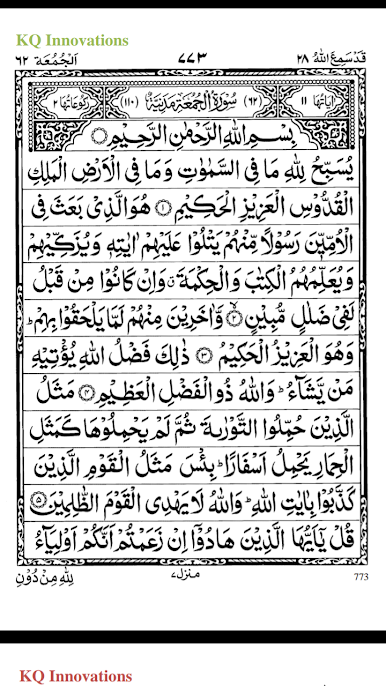 KQ Innovations
قَدْ سَمِعَ اللّٰهُ ٢٨
٧٧٣
اَلْجُمُعَة ٦٢
اٰيَاتُهَا ١١
(٦٢) سُوْرَةُ الْجُمُعَةِ مَدَنِيَّةٌ (١١٠)
رُكُوْعَاتُهَا ٢
بِسْمِ اللّٰهِ الرَّحْمٰنِ الرَّحِيْمِ
يُسَبِّحُ لِلّٰهِ مَا فِى السَّمٰوٰتِ وَمَا فِى الْاَرْضِ الْمَلِكِ
الْقُدُّوْسِ الْعَزِيْزِ الْحَكِيْمِ ۝١ هُوَ الَّذِىْ بَعَثَ فِى
الْاُمِّيّٖنَ رَسُوْلًا مِّنْهُمْ يَتْلُوْا عَلَيْهِمْ اٰيٰتِهٖ وَيُزَكِّيْهِمْ
وَيُعَلِّمُهُمُ الْكِتٰبَ وَالْحِكْمَةَ ۗ وَاِنْ كَانُوْا مِنْ قَبْلُ
لَفِىْ ضَلٰلٍ مُّبِيْنٍ ۝٢ وَّاٰخَرِيْنَ مِنْهُمْ لَمَّا يَلْحَقُوْا بِهِمْ ؕ
وَهُوَ الْعَزِيْزُ الْحَكِيْمُ ۝٣ ذٰلِكَ فَضْلُ اللّٰهِ يُؤْتِيْهِ
مَنْ يَّشَآءُ ؕ وَاللّٰهُ ذُو الْفَضْلِ الْعَظِيْمِ ۝٤ مَثَلُ
الَّذِيْنَ حُمِّلُوا التَّوْرٰىةَ ثُمَّ لَمْ يَحْمِلُوْهَا كَمَثَلِ
الْحِمَارِ يَحْمِلُ اَسْفَارًا ؕ بِئْسَ مَثَلُ الْقَوْمِ الَّذِيْنَ
كَذَّبُوْا بِاٰيٰتِ اللّٰهِ ؕ وَاللّٰهُ لَا يَهْدِى الْقَوْمَ الظّٰلِمِيْنَ ۝٥
قُلْ يٰٓاَيُّهَا الَّذِيْنَ هَادُوْٓا اِنْ زَعَمْتُمْ اَنَّكُمْ اَوْلِيَآءُ
لِلّٰهِ مِنْ دُوْنِ
منزل ٧
773
KQ Innovations